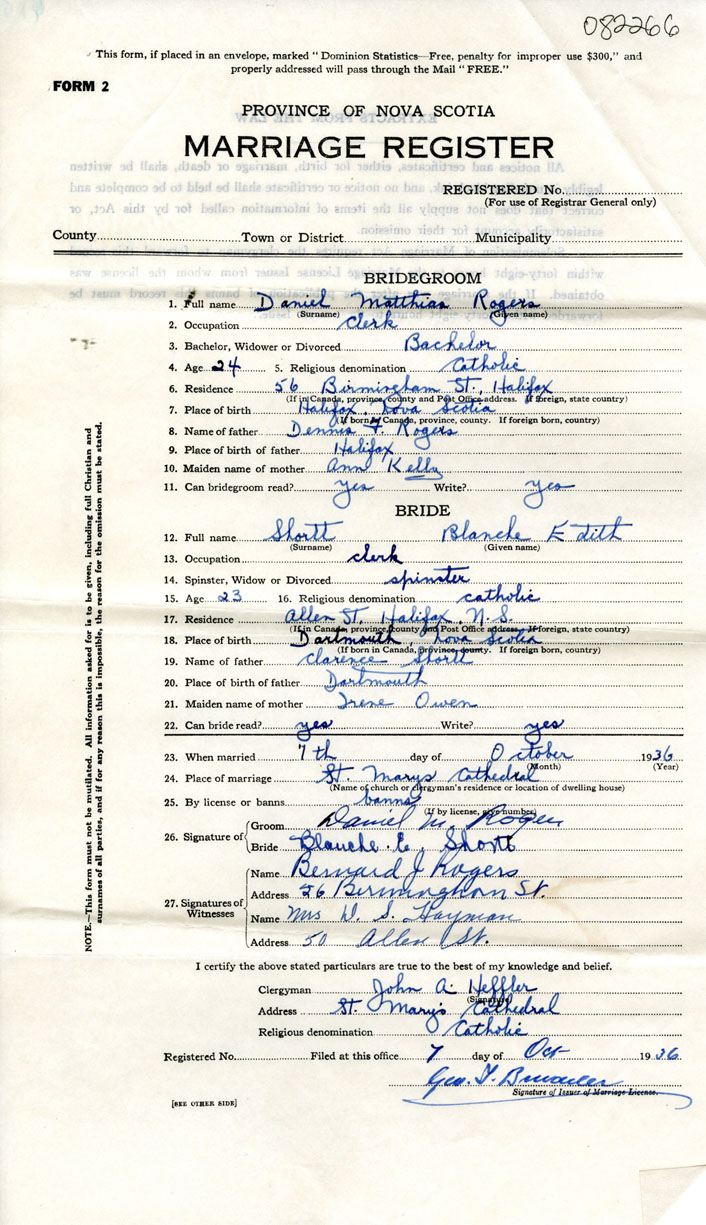 082266
This form, if placed in an envelope, marked "Dominion Statistics—Free, penalty for improper use $300," and
properly addressed will pass through the Mail "FREE."
FORM 2
PROVINCE OF NOVA SCOTIA
MARRIAGE REGISTER
REGISTERED No.
(For use of Registrar General only)
County Town or District Municipality
BRIDEGROOM
1. Full name Daniel Matthias Rogers
(Surname) (Given name)
2. Occupation clerk
3. Bachelor, Widower or Divorced Bachelor
4. Age 24 5. Religious denomination Catholic
6. Residence 56 Birmingham St., Halifax
(If in Canada, province, county and Post Office address. If foreign, state country)
7. Place of birth Halifax, Nova Scotia
(If born in Canada, province, county. If foreign born, country)
8. Name of father Dennis F. Rogers
9. Place of birth of father Halifax
10. Maiden name of mother Ann Kelly
11. Can bridegroom read? Yes Write? Yes
BRIDE
12. Full name Shortt Blanche Edith
(Surname) (Given name)
13. Occupation clerk
14. Spinster, Widow or Divorced spinster
15. Age 23 16. Religious denomination catholic
17. Residence Allen St. Halifax, N.S.
(If in Canada, province, county and Post Office address. If foreign, state country)
18. Place of birth Dartmouth, Nova Scotia
(If born in Canada, province, county. If foreign born, country)
19. Name of father Clarence Shortt
20. Place of birth of father Dartmouth
21. Maiden name of mother Irene Owen
22. Can bride read? yes Write? yes
23. When married 7th day of October 1936
(Month) (Year)
24. Place of marriage St. Marys Cathedral
(Name of church or clergyman's residence or location of dwelling house)
25. By license or banns banns
(If by license, give number)
26. Signature of Groom Daniel M. Rogers
Bride Blanche E. Shortt
27. Signatures of Witnesses
Name Bernard J Rogers
Address 56 Birmingham St.
Name Mrs W. S. Hayman
Address 50 Allen St.
I certify the above stated particulars are true to the best of my knowledge and belief.
Clergyman John A. Heffler
(Signature)
Address St. Mary's Cathedral
Religious denomination Catholic
Registered No. Filed at this office 7 day of Oct 1936
Geo.
Signature of Issuer of Marriage License.
[SEE OTHER SIDE]
NOTE.—This form must not be mutilated. All information asked for is to be given, including full Christian and
surnames of all parties, and if for any reason this is impossible, the reason for the omission must be stated.